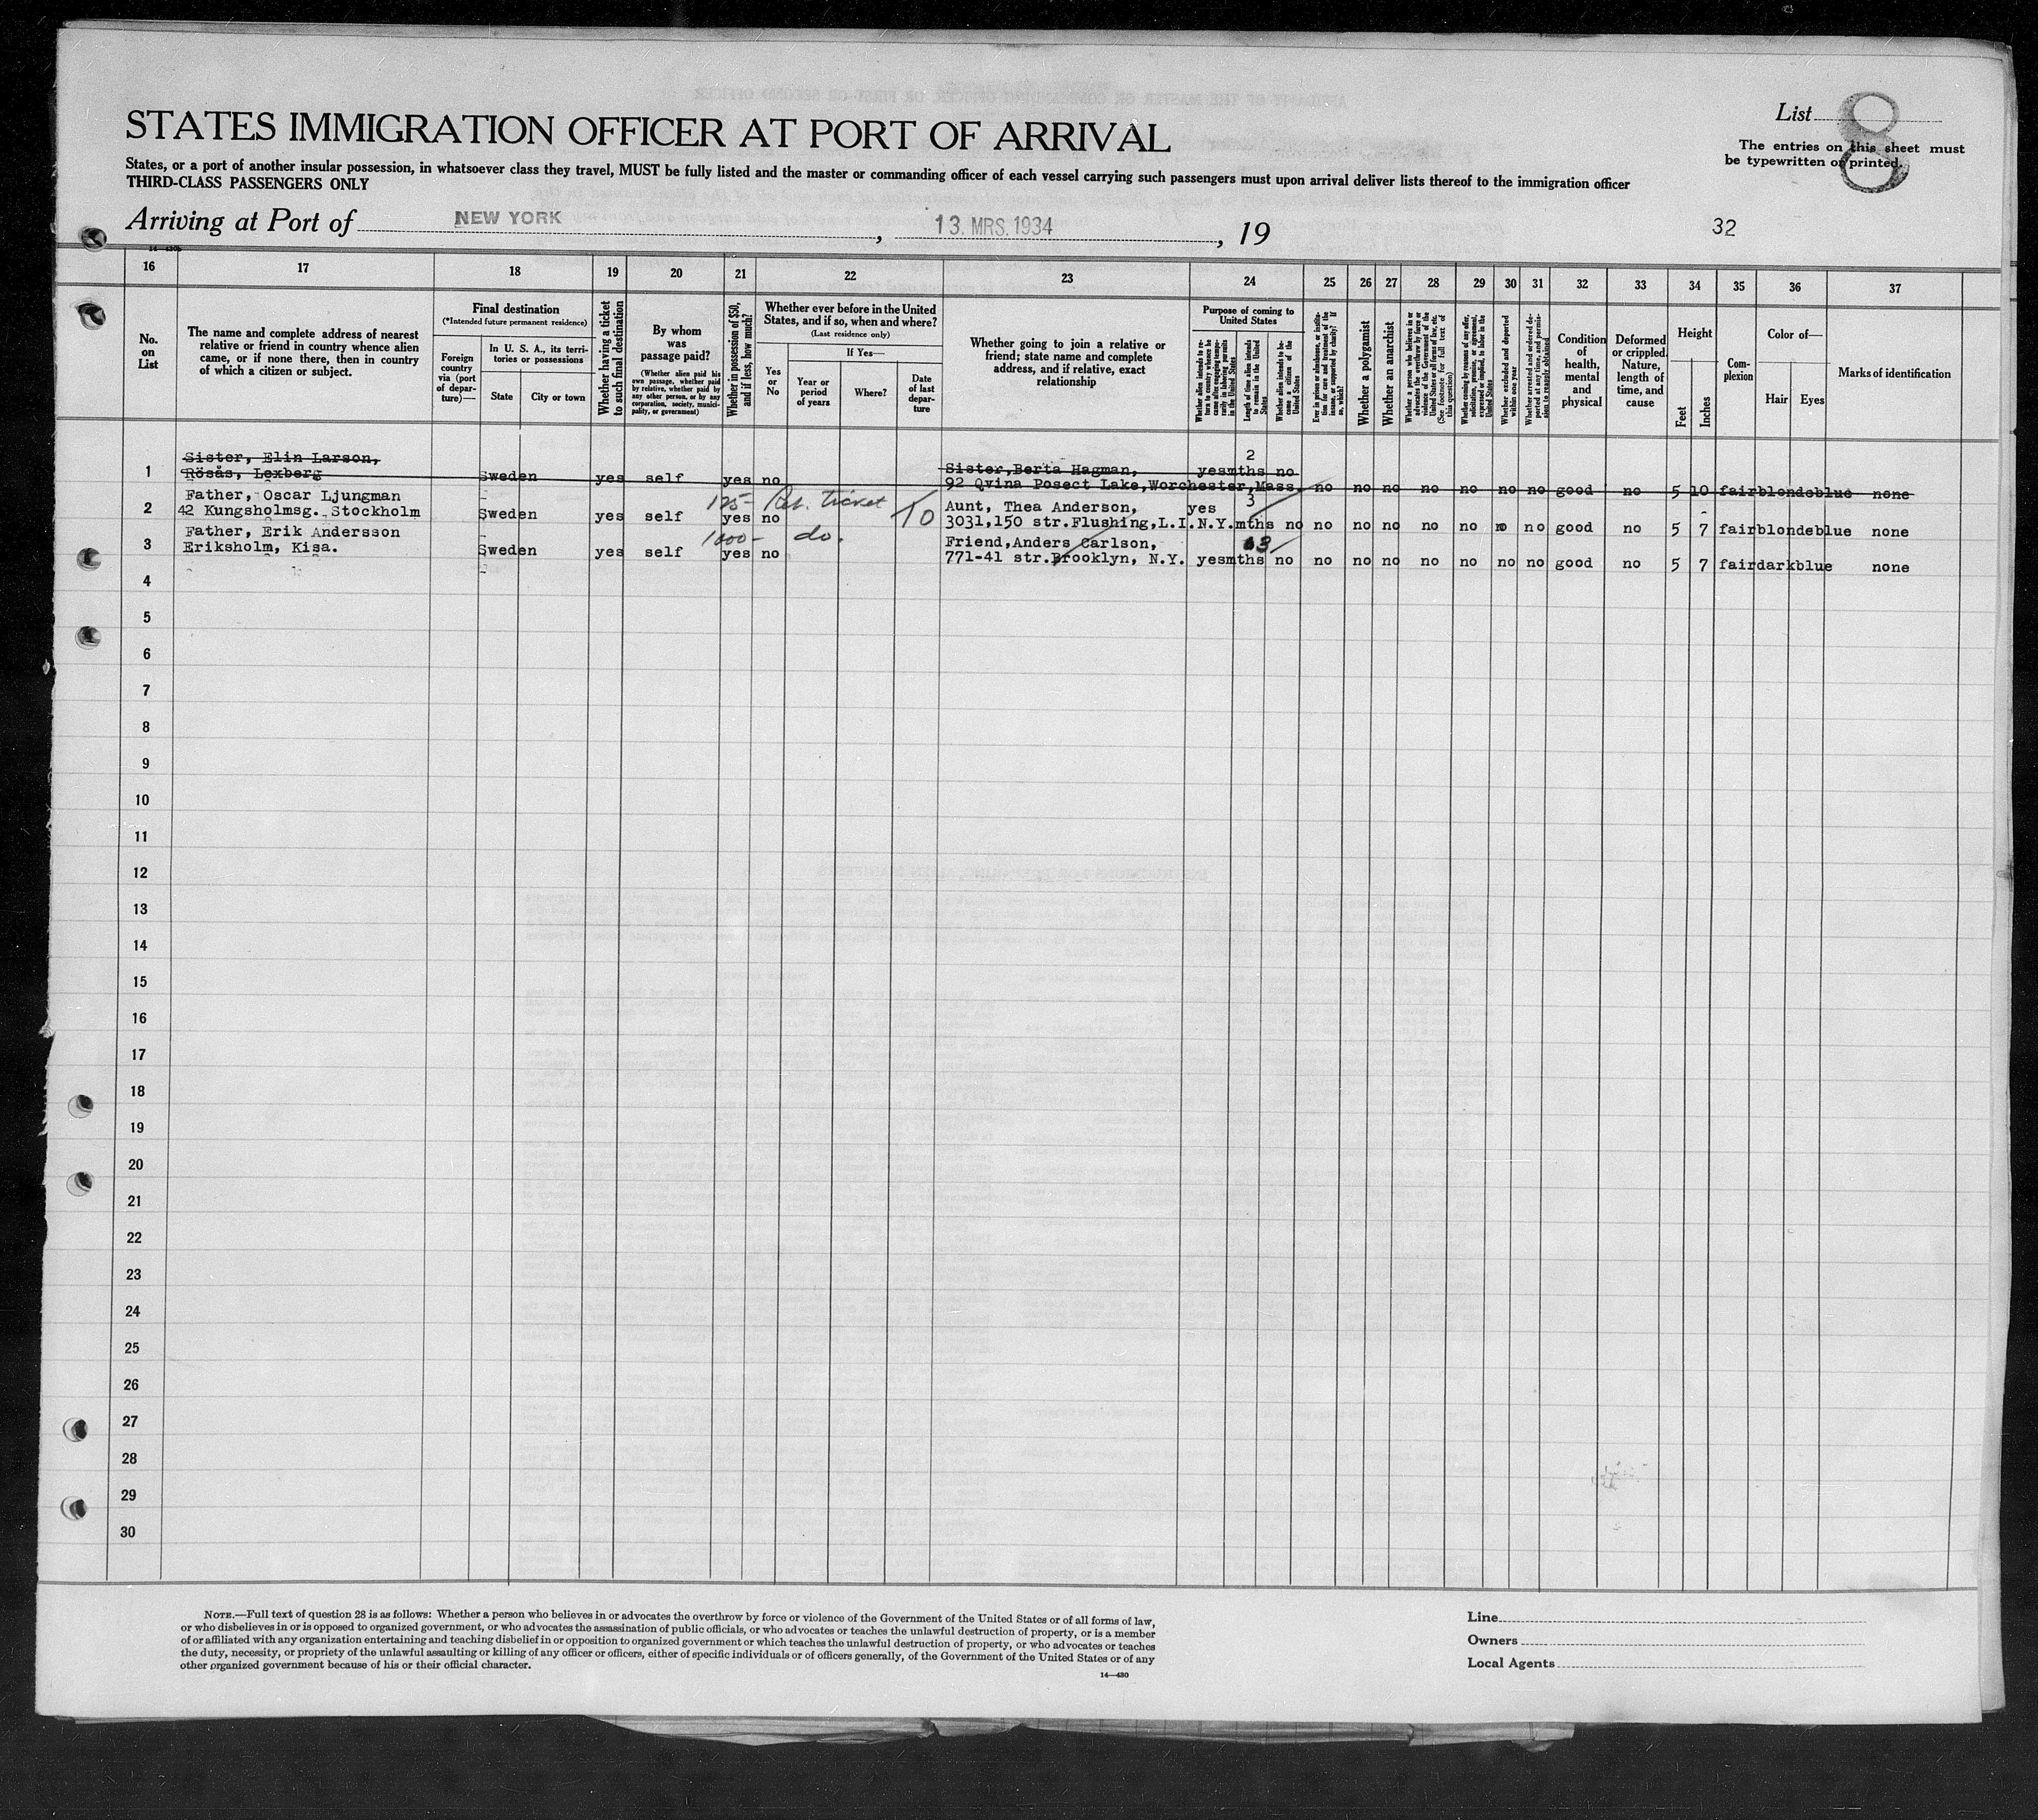 STATES IMMIGRATION OFFICER AT PORT OF ARRIVAL
List 8
The entries on this sheet must
be typewritten or printed.
States, or a port of another insular possession, in whatsoever class they travel, MUST be fully listed and the master or commanding officer of each vessel carrying such passengers must upon arrival deliver lists thereof to the immigration officer
THIRD-CLASS PASSENGERS ONLY
Arriving at Port of NEW YORK, 13. MRS. 1934, 19
32
16 17 18 19 20 21 22 23 24 25 26 27 28 29 30 31 32 33 34 35 36 37
No.
on
List
The name and complete address of nearest
relative or friend in country whence alien
came, or if none there, then in country
of which a citizen or subject.
Final destination
(*Intended future permanent residence)
Foreign
country
via (port
of depar-
ture)—
In U. S. A., its terri-
tories or possessions
State
City or town
Whether having a ticket
to such final destination
By whom
was
passage paid?
(Whether alien paid his
own passage, whether paid
by relative, whether paid by
any other person, or by any
corporation, society, munici-
pality, or government)
Whether in possession of $50,
and if less, how much?
Whether ever before in the United
States, and if so, when and where?
(Last residence only)
Yes
or
No
If Yes—
Year or
period
of years
Where?
Date
of last
depar-
ture
Whether going to join a relative or
friend; state name and complete
address, and if relative, exact
relationship
Purpose of coming to
United States
Length of time alien intends
to remain in the United
States
Whether alien intends to be-
come a citizen of the
United States
Whether a polygamist
Whether an anarchist
Whether excluded and deported
within one year
Condition
of
health,
mental
and
physical
Deformed
or crippled.
Nature,
length of
time, and
cause
Height
Feet
Inches
Com-
plexion
Color of—
Hair
Eyes
Marks of identification
2
Sister, Elin Larson,
1 Rösås, Lexberg Sweden yes self yes no Sister,Berta Hagman, yes mths no
92 Qvina Posect Lake,Worchester,Mass. no no no no no no no good no 5 10 fair blonde blue none
Father, Oscar Ljungman 125- Ret. ticket Aunt, Thea Anderson, yes 3
2 42 Kungsholmsg. Stockholm Sweden yes self yes no 3031,150 str.Flushing,L.I.N.Y. mths no no no no no no no no good no 5 7 fair blonde blue none
Father, Erik Andersson 1000- do. Friend,Anders Carlson, 3
3 Eriksholm, Kisa. Sweden yes self yes no 771-41 str.Brooklyn, N.Y. yes mths no no no no no no no no good no 5 7 fair dark blue none
4
5
6
7
8
9
10
11
12
13
14
15
16
17
18
19
20
21
22
23
24
25
26
27
28
29
30
NOTE.—Full text of question 28 is as follows: Whether a person who believes in or advocates the overthrow by force or violence of the Government of the United States or of all forms of law,
or who disbelieves in or is opposed to organized government, or who advocates the assassination of public officials, or who advocates or teaches the unlawful destruction of property, or is a member
of or affiliated with any organization entertaining and teaching disbelief in or opposition to organized government or which teaches the unlawful destruction of property, or who advocates or teaches
the duty, necessity, or propriety of the unlawful assaulting or killing of any officer or officers, either of specific individuals or of officers generally, of the Government of the United States or of any
other organized government because of his or their official character.
14—430
Line
Owners
Local Agents